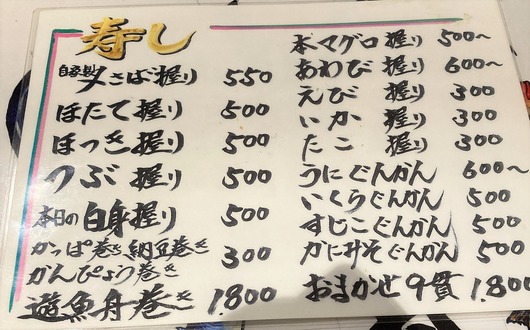 寿し
自家製〆さば握り 550
ほたて握り 500
ほっき握り 500
つぶ握り 500
本日の白身握り 500
かっぱ巻き、納豆巻き
かんぴょう巻き 300
遊魚舟巻き 1.800
本マグロ握り 500〜
あわび握り 600〜
えび握り 300
いか握り 300
たこ握り 300
うにぐんかん 600〜
いくらぐんかん 500
すじこぐんかん 500
かにみそぐんかん 500
おまかせ9貫 1.800